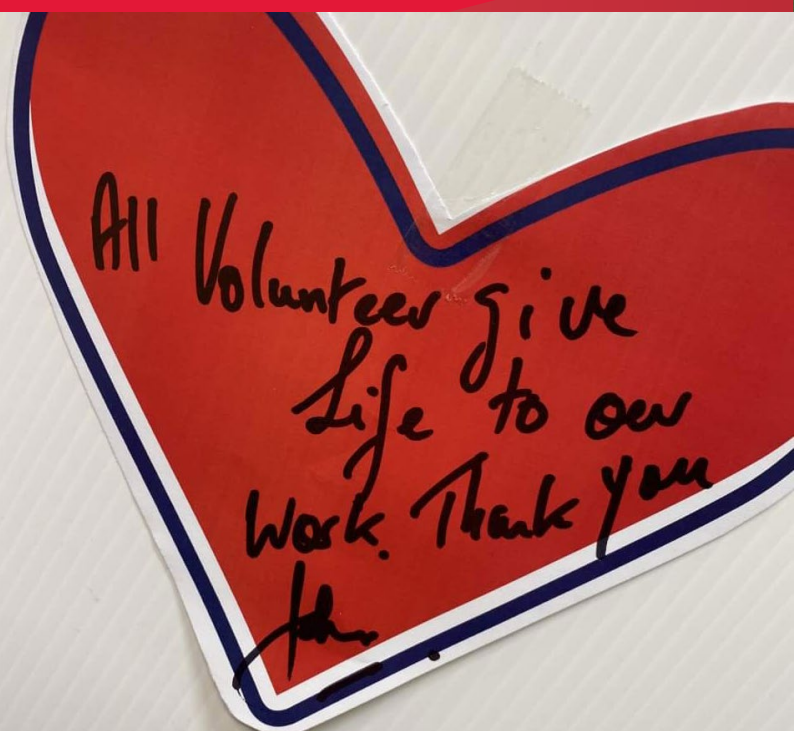 All Volunteer give
Life to our
work. Thank you
John